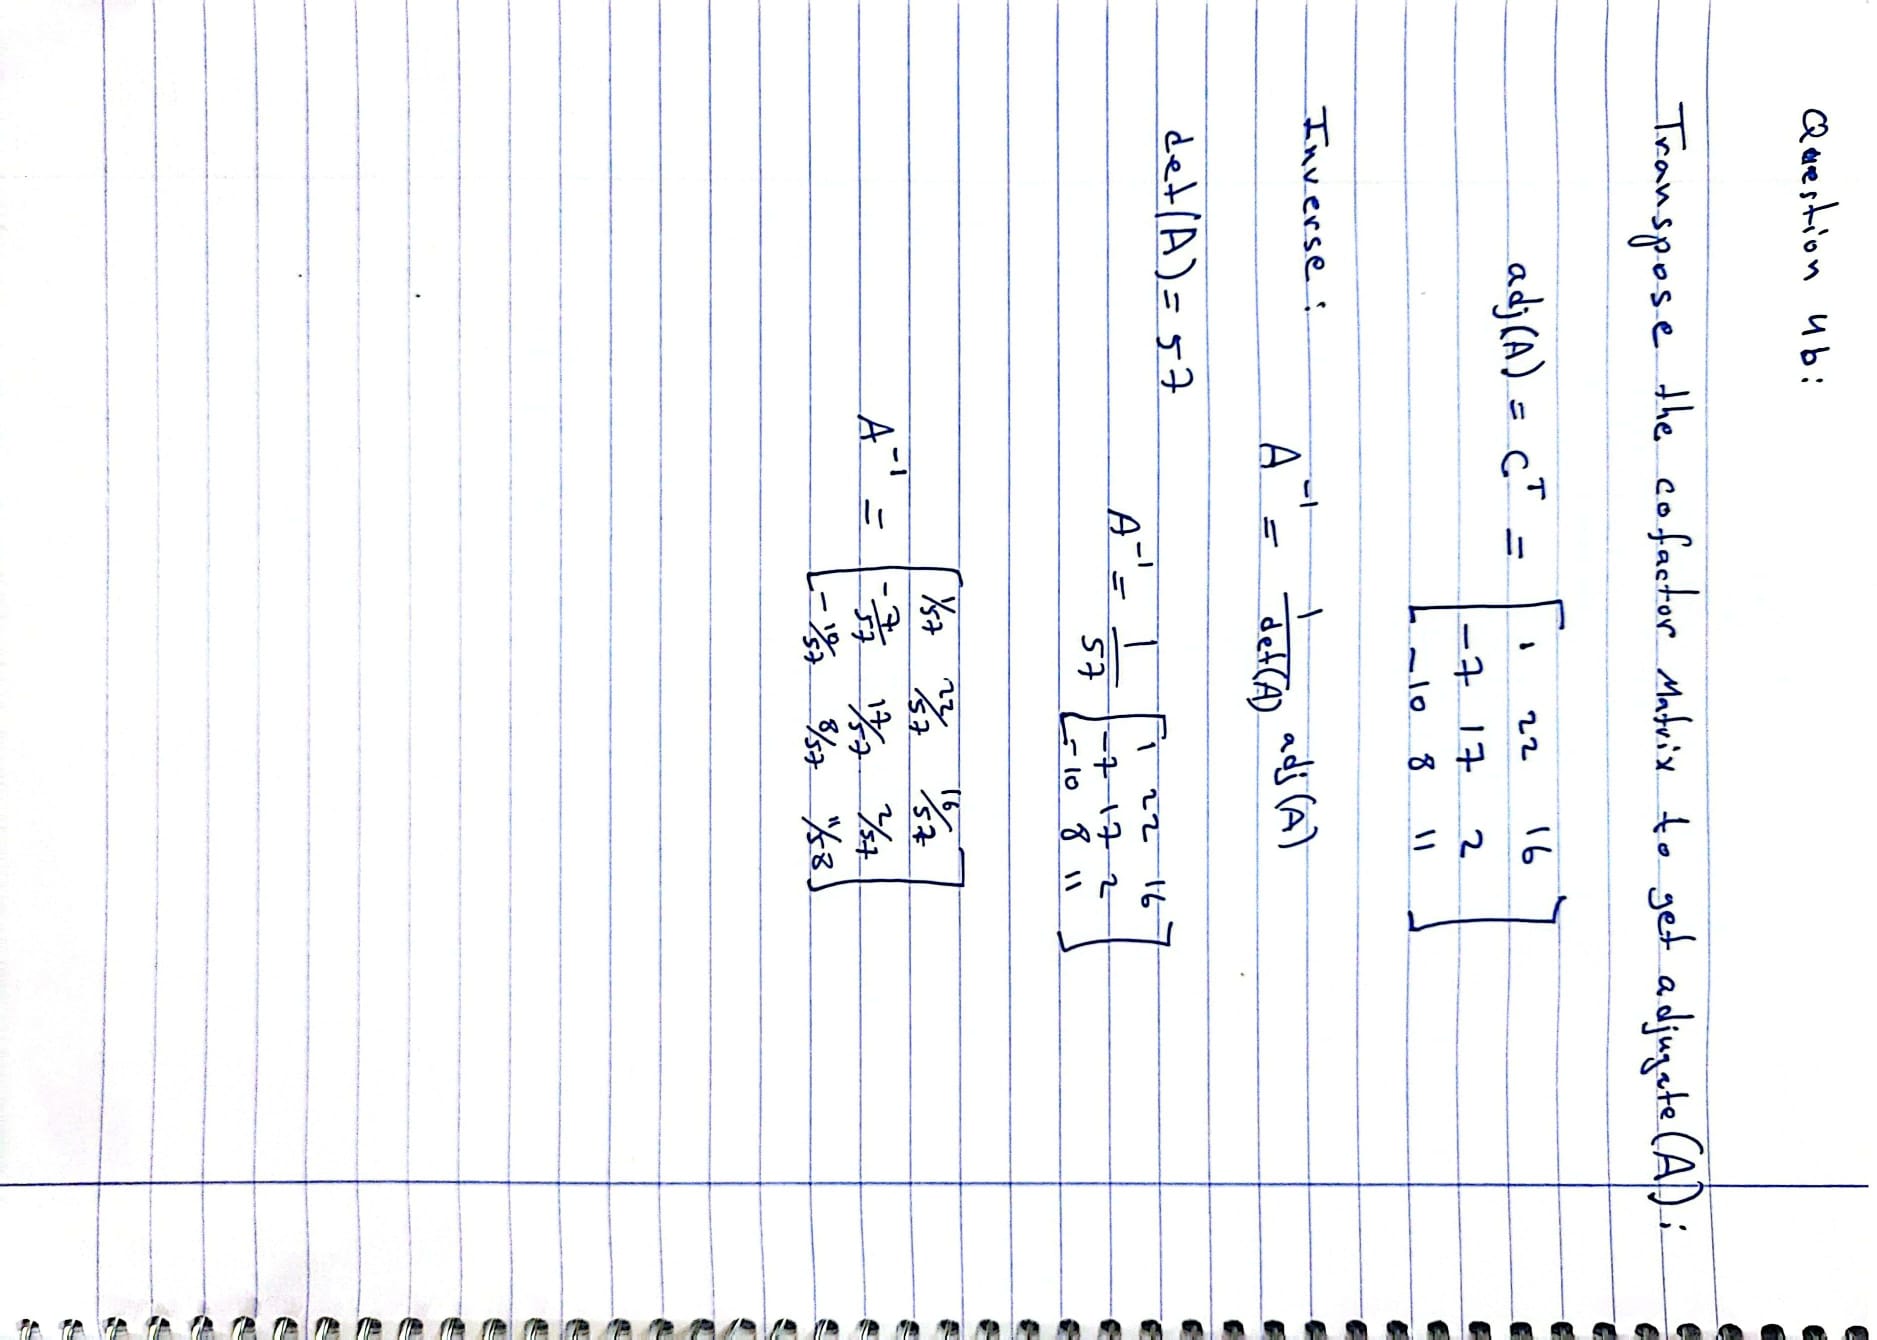 Question 4b:
Transpose the cofactor Matrix to get adjugate (A):
adj(A) = C^T = [1 22 16
-7 17 2
-10 8 11]
Inverse :
A^-1 = 1/det(A) adj(A)
det(A) = 57
A^-1 = 1/57 [1 22 16
-7 17 2
-10 8 11]
A^-1 = [1/57 22/57 16/57
-7/57 17/57 2/57
-10/57 8/57 11/58]